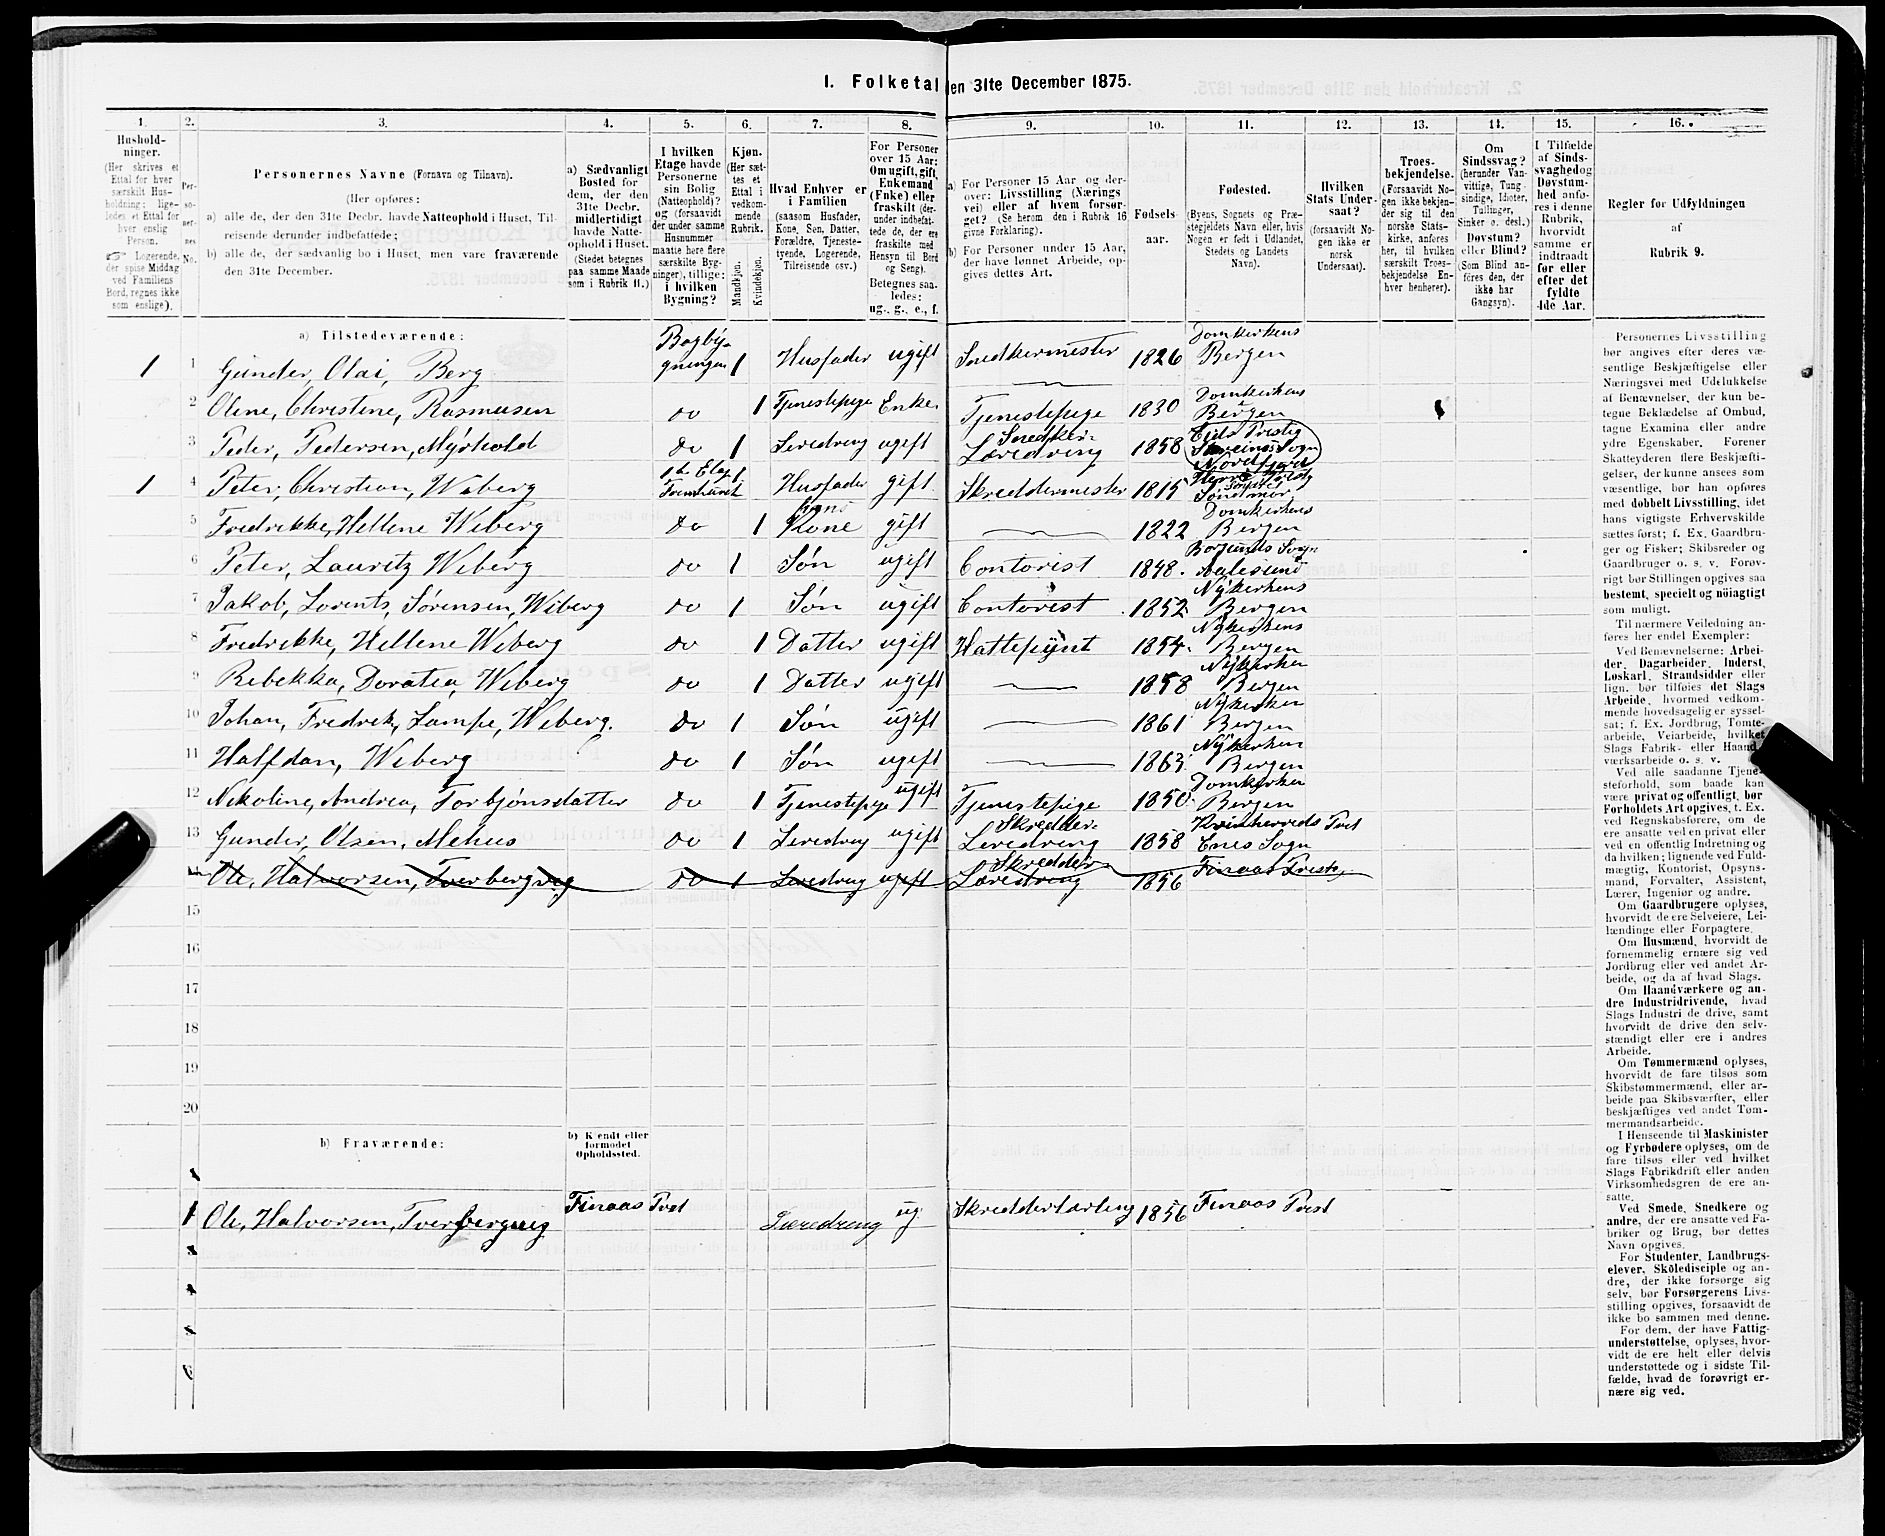 1. Folketal den 31te December 1875.
1. 2. 3. 4. 5. 6. 7. 8. 9. 10. 11. 12. 13. 14. 15. 16.
Hushold-
ninger.
(Her skrives et
Ettal for hver
særskilt Hus-
holdning; lige-
ledes et Ettal for
hver enslig
Person.
☞ Logerende,
der spise Middag
ved Familiens
Bord, regnes ikke
som enslige).
Per-
so-
ner-
nes
No.
Personernes Navne (Fornavn og Tilnavn).
(Her opføres:
a) alle de, der den 31te Decbr. havde Natteophold i Huset, Til-
reisende derunder indbefattede;
b) alle de, der sædvanlig bo i Huset, men vare fraværende
den 31te December.
a) Sædvanligt
Bosted for
dem, der den
31te Decbr.
midlertidigt
havde Natte-
ophold i Huset.
(Stedet betegnes
paa samme Maade
som i Rubrik 11.)
I hvilken
Etage havde
Personerne
sin Bolig
(Natteophold)?
og (forsaavidt
der under samme
Husnummer
maatte høre flere
særskilte Byg-
ninger), tillige:
i hvilken
Bygning?
Kjøn.
(Her sæt-
tes et
Ettal i
vedkom-
mende
Rubrik.
Mandkjøn.
Kvindekjøn.
Hvad Enhver er
i Familien
(saasom Husfader,
Kone, Søn, Datter,
Forældre, Tjeneste-
tyende, Logerende,
Tilreisende osv.)
For Personer
over 15 Aar:
Om ugift, gift,
Enkemand
(Enke) eller
fraskilt (der-
under indbefat-
tede de, der ere
fraskilte med
Hensyn til Bord
og Seng).
Betegnes saa-
ledes:
ug., g., e., f.
a) For Personer 15 Aar og der-
over: Livsstilling (Nærings
vei) eller af hvem forsør-
get? (Se herom den i Rubrik 16
givne Forklaring).
b) For Personer under 15 Aar,
der have lønnet Arbeide, op-
gives dettes Art.
Fødsels-
aar.
Fødested.
(Byens, Sognets og Præ-
stegjeldets Navn eller, hvis
Nogen er født i Udlandet,
Stedets og Landets
Navn).
Hvilken
Stats Under-
saat?
(forsaavidt No-
gen ikke er
norsk
Undersaat).
Troes-
bekjendelse.
(Forsaavidt No-
gen ikke bekjen-
der sig til den
norske Stats-
kirke, anføres
her, til hvilken
særskilt Troes-
bekjendelse En-
hver henhører).
Om
Sindssvag?
(herunder Van-
vittige, Tung-
sindige, Idioter,
Tullinger,
Sinker o. desl.)
Døvstum?
eller Blind?
(Som Blind an-
føres den, der
ikke har
Gangsyn).
I Tilfælde
af Sinds-
svaghed og
Døvstum-
hed anfø-
res i denne
Rubrik,
hvorvidt
samme er
indtraadt
før eller
efter det
fyldte
4de Aar.
Regler før Udfyldningen
af
Rubrik 9.
a) Tilstedeværende:
1 1 Gunder, Olai, Berg Bagbÿ-gningen 1 Husfader ugift Snedkermester 1826 Domkirkens Bergen
2 Oline, Christine, Rasmusen do 1 Tjenestepige Enke Tjenestepige 1830 Domkirkens Bergen
3 Peder, Pedersen, Mÿrhold do 1 Leredreng ugift Snedker-Læredreng 1858 Eids Prestig Sogn Nordfjord
1 4 Peter, Christian, Wiberg 1te Etag Fremhuset 1 Husfader gift Skreddermester 1815 Søndmør
5 Fredrikke, Hellene Wiberg do 1 hans Kone gift 1822 Domkirkens Bergen
6 Peter, Lauritz Wiberg do 1 Søn ugift Contorist 1848 Borgunds Sogn Aalesund
7 Jakob, Lorents, Sørensen, Wiberg do 1 Søn ugift Contorist 1852 Nÿkerkens Bergen
8 Fredrikke, Hellene Wiberg do 1 Datter ugift Hattepÿnt 1854 Nykerkens Bergen
9 Rebekka, Doratea, Wiberg do 1 Datter ugift 1858 Nÿkerken Bergen
10 Johan, Fredrik, Lampe, Wiberg. do 1 Søn ugift 1861 Nÿkerken Bergen
11 Halfdan, Wiberg do 1 Søn ugift 1863 Nÿkerken Bergen
12 Nikoline, Andrea, Torbjønsdatter do 1 Tjenestepige ugift Tjenestepige 1850 Domkirken Bergen
13 Gunder, Olsen, Mehus do 1 Leredreng ugift Skredder-Leredreng 1858 Kvinherreds Prest Enes Sogn
Ole, Halvorsen, Tverbergvig do 1 Leredreng ugift Skredder Læredreng 1856 Finaas Prest
15
16
17
18
19
20
b) Fraværende:
b) Kjendt eller
formodet
Opholdssted.
1 Ole, Halvorsen, Tverbergvig Finaas Prst Læredreng ug. Skredderlærling 1856 Finaas Prest
6
Personernes Livsstilling
bør angives efter deres væ-
sentlige Beskjæftigelse eller
Næringsvei med Udelukkelse
af Benævnelser, der kun be-
tegne Beklædelse af Ombud,
tagne Examina eller andre
ydre Egenskaber. Forener
Skatteyderen flere Beskjæfti-
gelser, der kunne ansees som
væsentlige, bør han opføres
med dobbelt Livsstilling, idet
hans vigtigste Erhvervskilde
sættes først; f. Ex. Gaardbru-
ger og Fisker; Skibsreder og
Gaardbruger o. s. v. Forøv-
rigt bør Stillingen opgives saa
bestemt, specielt og nöiagtigt
som muligt.
Til nærmere Veiledning an-
føres her endel Exempler:
Ved Benævnelserne: Arbei-
der, Dagarbeider, Inderst,
Løskarl, Strandsidder eller
lign. bør tilføies det Slags
Arbeide, hvormed vedkom-
mende hovedsagelig er syssel-
sat; f. Ex. Jordbrug, Tomte-
arbeide, Veiarbeide, hvilket
Slags Fabrik- eller Haand-
værksarbeide o. s. v.
Ved alle saadanne Tjene-
steforhold, som baade kan
være privat og offentligt, bør
Forholdets Art opgives, t. Ex.
ved Regnskabsførere, om de
ere ansatte ved en privat eller
ved en offentlig Indretning og
da hvilken; lignende ved Fuld-
mægtig, Kontorist, Opsyns-
mand, Forvalter, Assistent,
Lærer, Ingeniør og andre.
Om Gaardbrugere oplyses,
hvorvidt de ere Selveiere, Lei-
lændinge eller Forpagtere.
Om Husmænd, hvorvidt de
fornemmelig ernære sig ved
Jordbrug eller ved andet Ar-
beide, og da af hvad Slags.
Om Haandværkere og an-
dre Industridrivende, hvad
Slags Industri de drive, samt
hvorvidt de drive den selv-
stændigt eller ere i andres
Arbeide.
Om Tømmermænd oplyses,
hvorvidt de fare tilsøs som
Skibstømmermænd, eller ar-
beide paa Skibsværfter, eller
beskjæftiges ved andet Tøm-
mermandsarbeide.
I Henseende til Maskinister
og Fyrbødere oplyses, om de
fare tilsøs eller ved hvilket
Slags Fabrikdrift eller anden
Virksomhedsgren de ere an-
satte.
Ved Smede, Snedkere og
andre, der ere ansatte ved Fa-
briker og Brug, bør dettes
Navn opgives.
For Studenter, Landbrugs-
elever, Skoledisciple og an-
dre, der ikke forsørge sig
selv, bør Forsørgerens Livs-
stilling opgives, forsaavidt de
ikke bo sammen med denne.
For dem, der have Fattig-
understøttelse, oplyses, hvor-
vidt de ere helt eller delvis
understøttede og i sidste Til-
fælde, hvad de forøvrigt er-
nære sig ved.